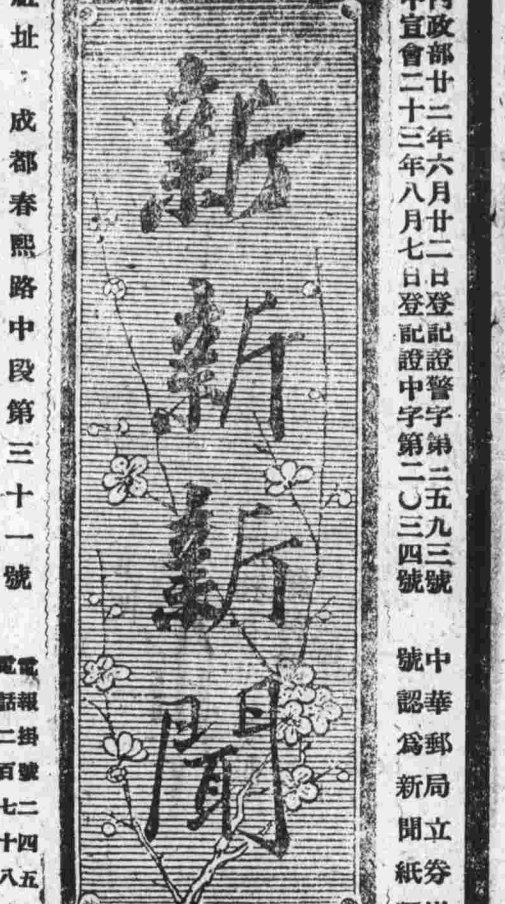 內政部廿二年六月廿二日登記證警字第二五九三號
中宣會二十三年八月七日登記證中字第二〇三四號
中華郵局立券
號認爲新聞紙
新新新聞
社址：成都春熙路中段第三十一號
電報掛號二四五
電話二百七十八